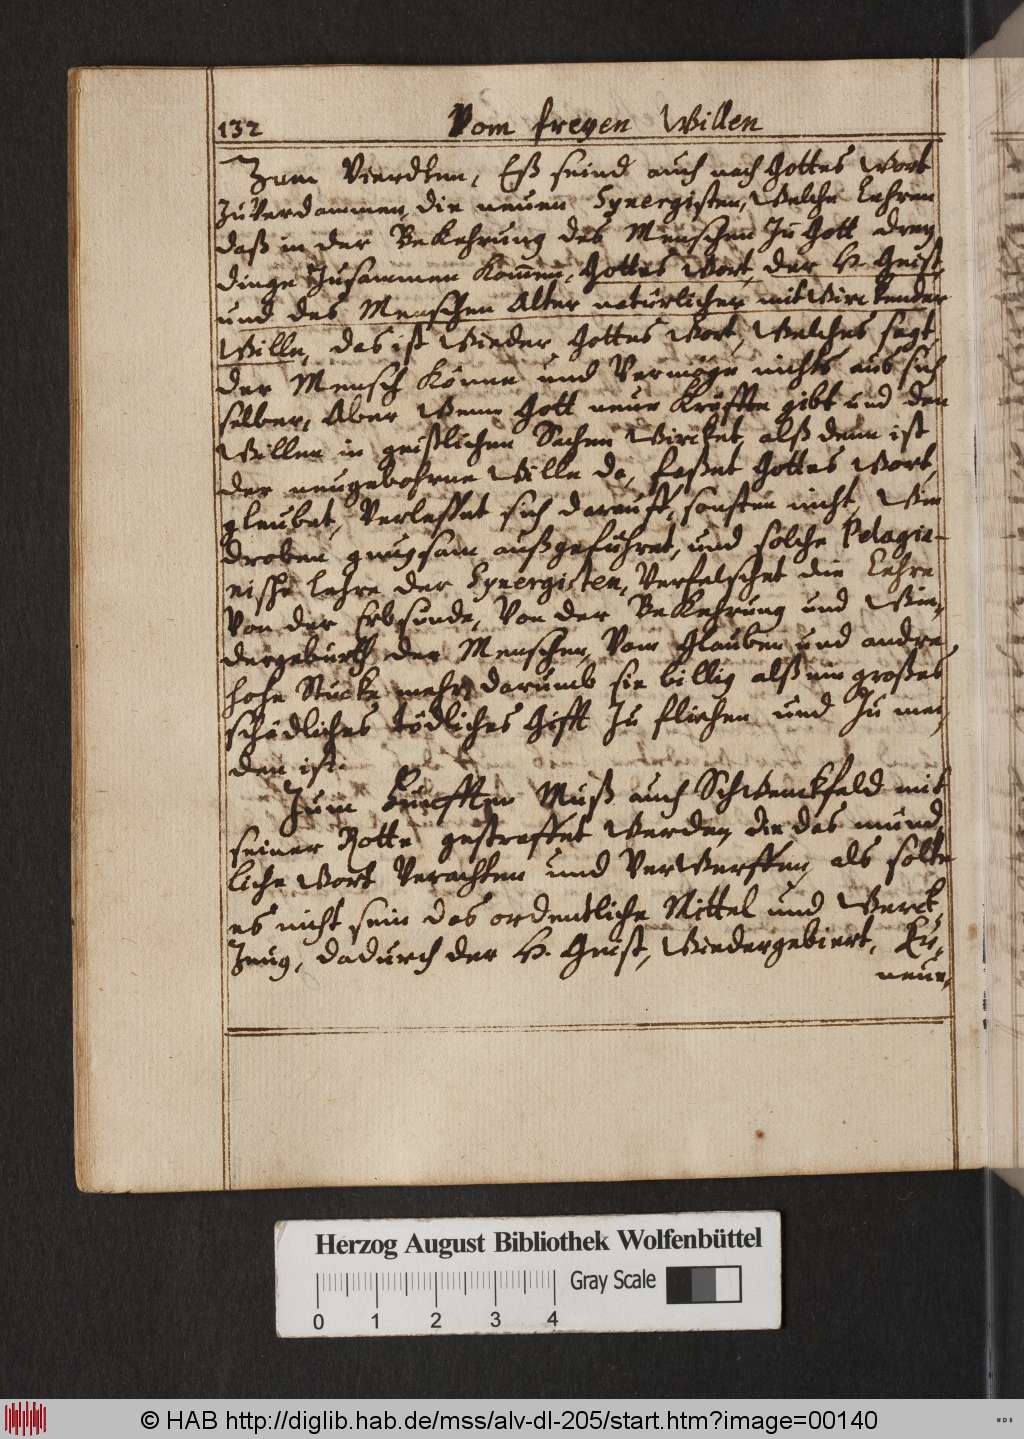 132 Vom freyen Willen
Zum Vierdten, Eß seind auch nach Gottes Wort
zu Verdammen, die neuen Synergisten, Welche Lehren
daß in der BeKehrung des Menschen Zu Gott drey
dinge Zusammen Kom̄en, Gottes Wort, der H. Geist,
und des Menschen Alter natürlicher mitWirckender
Wille, das ist Wieder Gottes Wort, Welches sagt
der Mensch Könne und Vermöge nichts aus sich
selber, Aber Wenn Gott neue Kräffte gibt und den
Willen in geistlichen Sachen Wircket, alß denn ist
der neugebohrne Wille da, faßet Gottes Wort,
gleubet, Verlesset sich darauff, sonsten nicht, Wie
droben gnugsam außgeführet, und solche Pelagia-
nische Lehre der Synergisten, Verfelschet die Lehre
Von der Erbsünde, Von der BeKehrung und Wie,
dergeburth der Menschen, Vom Glauben und andre
hohe Stücke mehr, darumb sie billig alß ein großes
schädliches tödliches Gifft Zu fliehen und Zu mey,
den ist.
Zum Fünfften Muß auch SchWenckfeld mit
seiner Rotte gestraffet Werden, die das münd,
liche Wort Verachten und VerWerffen, als solte
es nicht sein das ordentliche Mittel und Werck,
Zeug, dadurch der H. Geist, Wiedergebiert, Er,
neue,
Herzog August Bibliothek Wolfenbüttel
Gray Scale
0 1 2 3 4
© HAB http://diglib.hab.de/mss/alv-dl-205/start.htm?image=00140